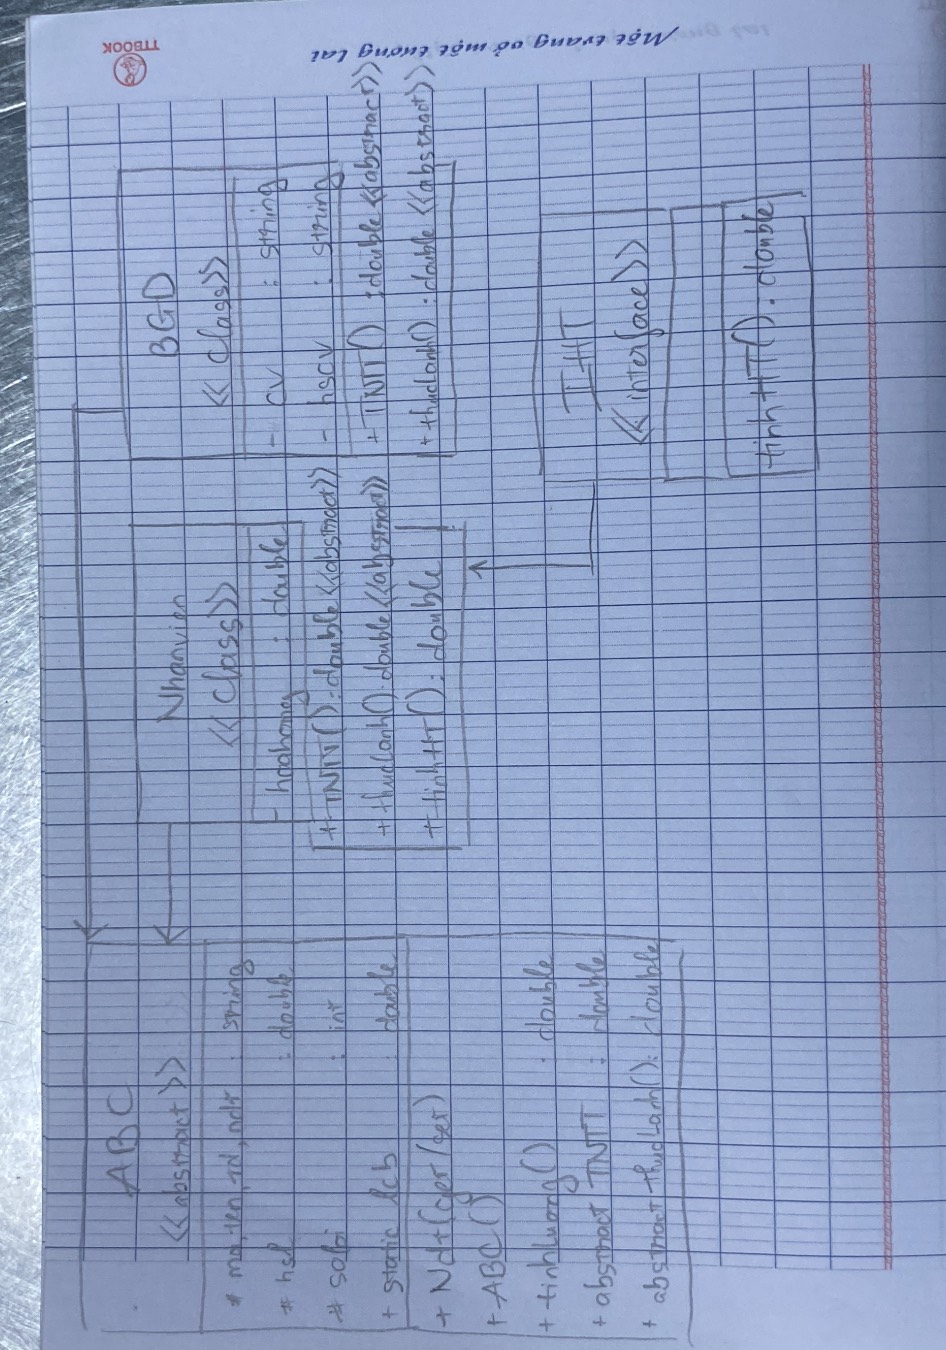 TTBOOK
Một trang vở một tương lai
ABC
<<abstract>>
# ma, ten, td, ndt : string
# hsl : double
# : int
+ static lcb : double
+ Ndt(get/set)
+ ABC()
+ tinhluong() : double
+ abstract TNTT : double
+ abstract thuclanh(): double
Nhanvien
<<Class>>
- : double
+ TNTT(): double <<abstract>>
+ thuclanh(): double <<abstract>>
+ tinhHT(): double
BGD
<<Class>>
- cv : string
- hscv : string
+ TNTT() : double <<abstract>>
+ thuclanh() : double <<abstract>>
IHT
<<interface>>
tinhHT(): double